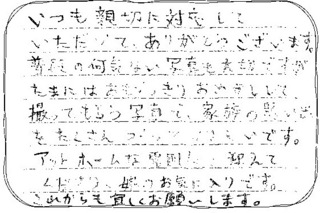 いつも親切に対応して
いただいて、ありがとうございます。
普段の何気ない写真も素敵ですが
たまにはおもいっきりおめかしして
撮ってもらう写真で、家族の思い出
をたくさん いです。
アットホームな 迎えて
くださり、お気に入りです。
これからも宜しくお願いします。